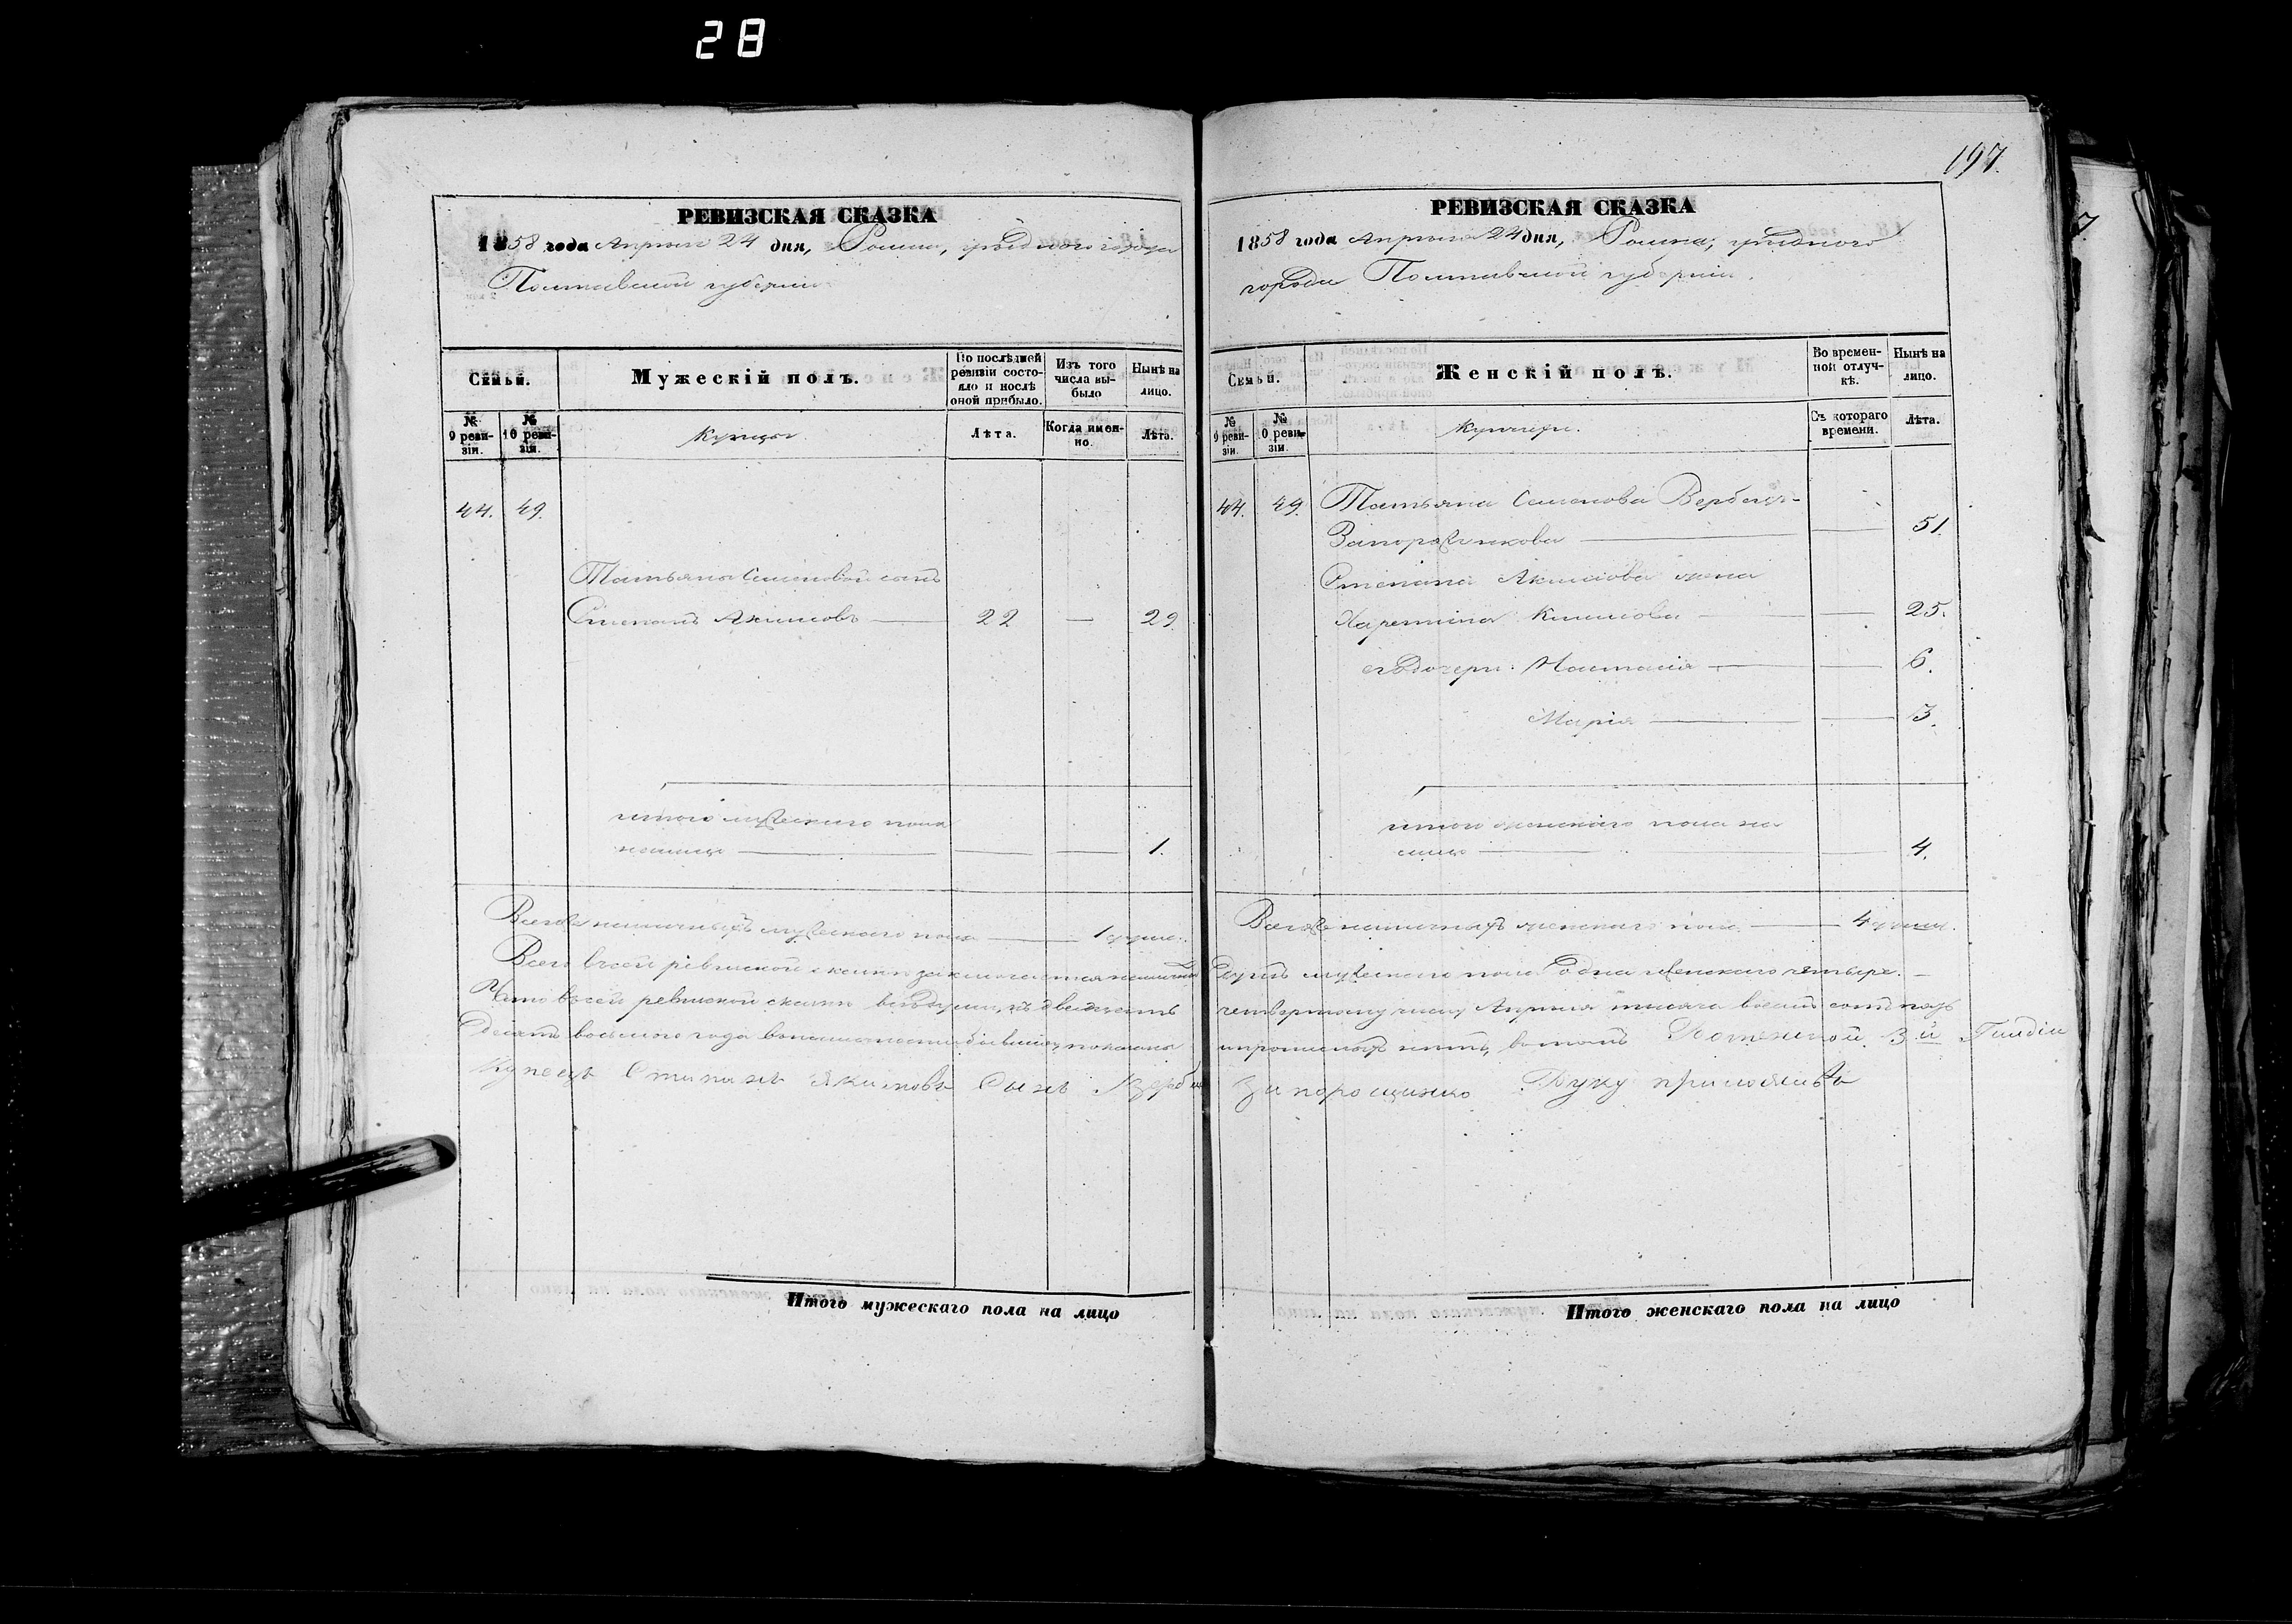 28
197.
РЕВИЗСКАЯ СКАЗКА
1858 года Апрѣля 24 дня, Ромна, уѣзднаго города
Полтавской губерніи
Семьи.
Мужескій полъ.
По послѣдней ревизіи состояло и послѣ оной прибыло.
Изъ того числа выбыло
Нынѣ на лицо.
№ 9 ревизіи.
№ 10 ревизіи.
Купцы.
Лѣта.
Когда именно.
Лѣта.
44. 49.
Татьяны Семеновой сынъ
Степанъ Акимовъ — 22 — 29.
итого мужескаго пола
налицо — — — 1.
Всего наличныхъ мужескаго пола — 1 душа.
Итого мужескаго пола на лицо
РЕВИЗСКАЯ СКАЗКА
1858 года Апрѣля 24 дня, Ромна, уѣзднаго
города Полтавской губерніи.
Семьи.
Женскій полъ.
Во временной отлучкѣ.
Нынѣ на лицо.
№ 9 ревизіи.
№ 10 ревизіи.
Купчихи.
Съ котораго времени.
Лѣта.
44. 49. Татьяна Семенова
— — 51.
Степана Акимова жена
Климова — — 25.
его дочери: Настасія — 6.
Марія — — 3.
итого женскаго пола на
лицо — — 4.
наличныхъ женскаго пола — 4 души.
Всего въ сей ревизской сказкѣ заключается наличныхъ душъ мужескаго пола одна женскаго четыре. —
Что въ сей ревизской сказкѣ всѣ души, къ двадцать четвертому числу Апрѣля тысяча восемь сотъ пять
десятъ восьмого года въ наличности бывшія, показаны и прописныхъ нетъ, въ томъ 3й Гилдіи
Купецъ Стипанъ Якимовъ Сынъ Запорощинко Руку приложилъ
Итого женскаго пола на лицо